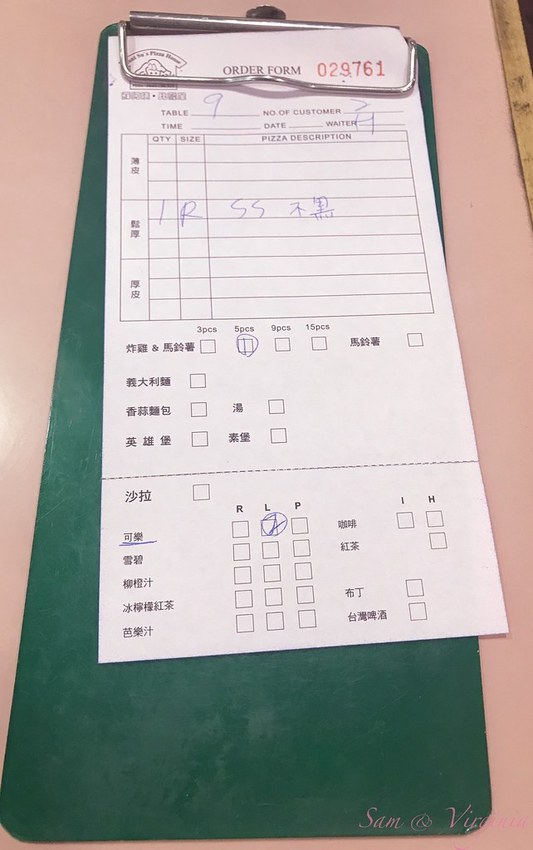 Pizza House
ORDER FORM 029761
TABLE 9 NO.OF CUSTOMER 2
TIME DATE WAITER
QTY SIZE PIZZA DESCRIPTION
薄皮
鬆厚 1 R SS 不黑
厚皮
3pcs 5pcs 9pcs 15pcs
炸雞 & 馬鈴薯 1 馬鈴薯
義大利麵
香蒜麵包 湯
英雄堡 素堡
沙拉
R L P I H
可樂 2 咖啡
雪碧 紅茶
柳橙汁
冰檸檬紅茶 布丁
芭樂汁 台灣啤酒
Sam & Virginia